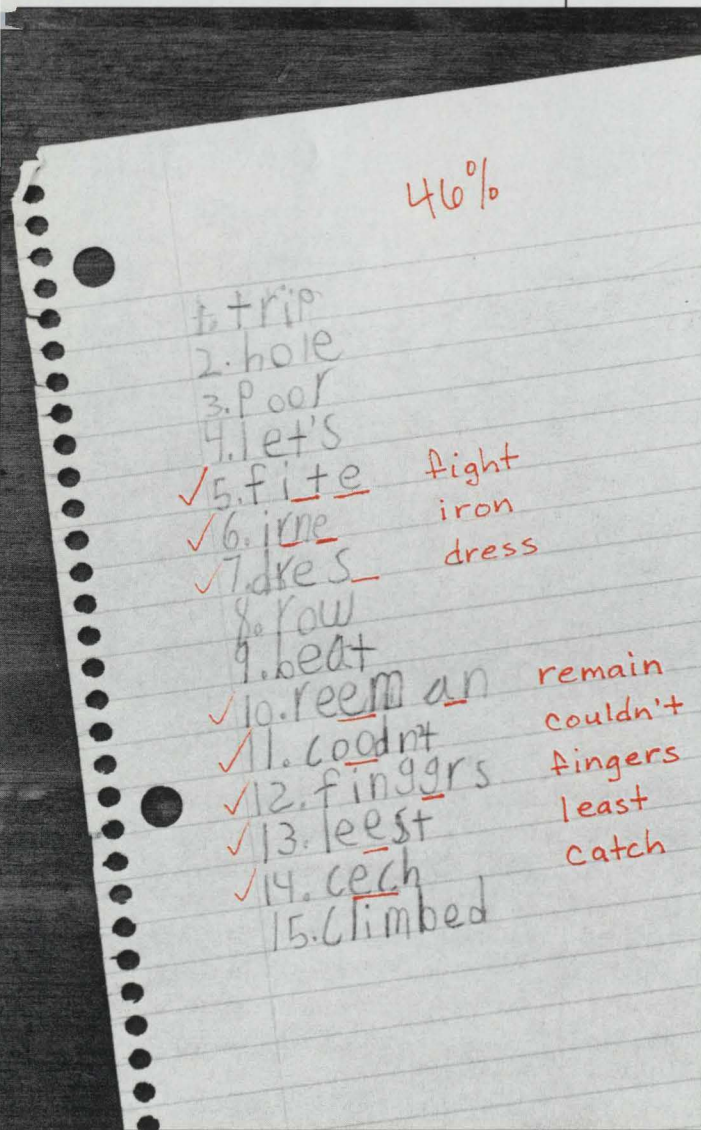 46%
1. trip
2. hole
3. Poor
4. let's
✓ 5. fite fight
✓ 6. irne iron
✓ 7. dres_ dress
8. row
9. beat
✓ 10. reeman remain
✓ 11. coodn't couldn't
✓ 12. finggrs fingers
✓ 13. leest least
✓ 14. cech catch
15. climbed